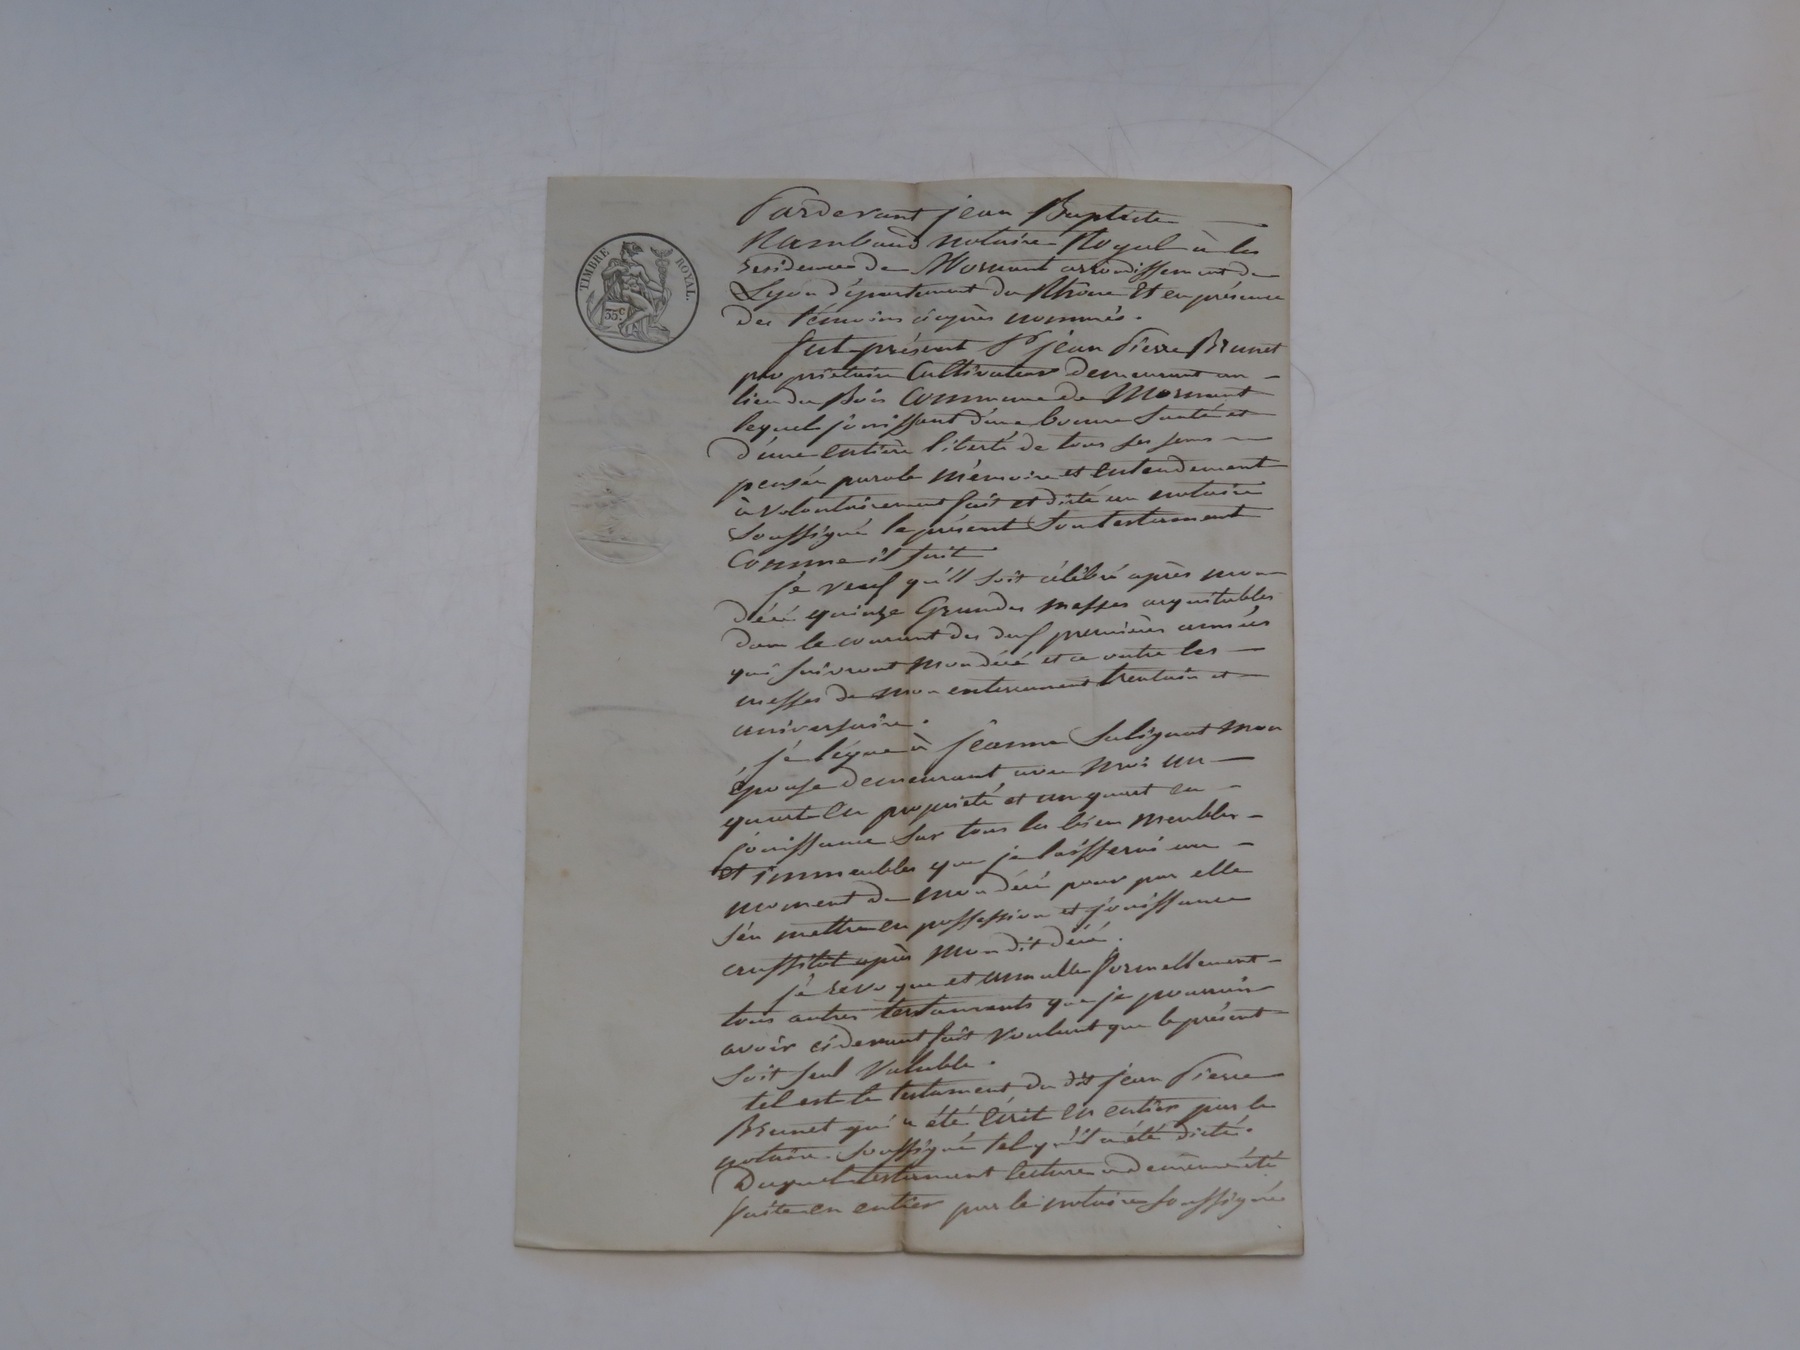 TIMBRE ROYAL.
35.c
Pardevant jean Baptiste
Rambaud notaire Royal à la
residence de Mornant arrondissement de
Lyon département du Rhône Et en présence
des témoins ciaprès nommés.
fut présent Sr jean Pierre Brunet
propriétaire Cultivateur demeurant au
lieu du Bois Commune de Mornant
lequel jouissant d'une bonne Santé et
d'une entière liberté de tous ses sens
pensée parole mémoire et entendement
à volontairement fait et dicté au notaire
Soussigné le présent Son testament
Comme il suit
je veux qu'il soit célébré après mon
décé quinze Grandes messes acquitables
dans le courant des deux premières années
qui suivront mon décé et ce outre les
messes de mon enterrement trentain et
aniversaire.
je lègue à jeanne Salignat mon
épouse demeurant avec moi un
quart en propriété et un quart en
jouissance Sur tous les biens meubles
et immeubles que je laisserai au
moment de mon décé pour par elle
s'en mettre en possession et jouissance
aussitot après mon dit décé.
je revoque et annulle formellement
tous autres testaments que je pourrais
avoir cidevant fait voulant que le présent
soit seul valable.
tel est le testament du dit jean Pierre
Brunet qui a été écrit en entier par le
notaire Soussigné tel qu'il a été dicté.
Duquel testament lecture a de même été
faite en entier par le notaire soussigné